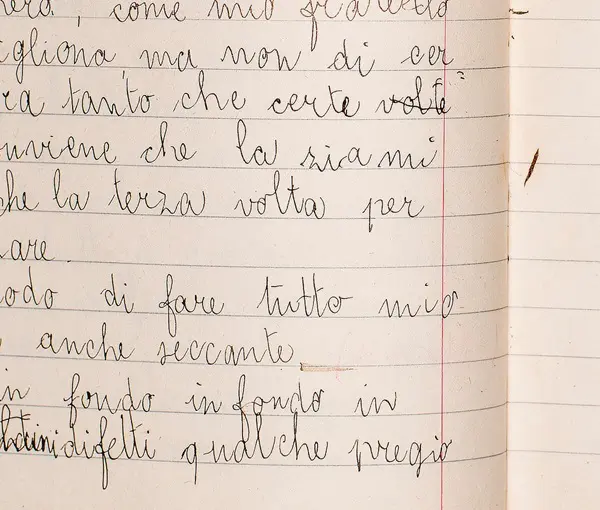 nera, come mio fratello
igliona, ma non di cer
ra tanto che certe volte
nviene che la zia mi
che la terza volta per
are.
odo di fare tutto mio
anche seccante
in fondo in fondo in
difetti qualche pregio